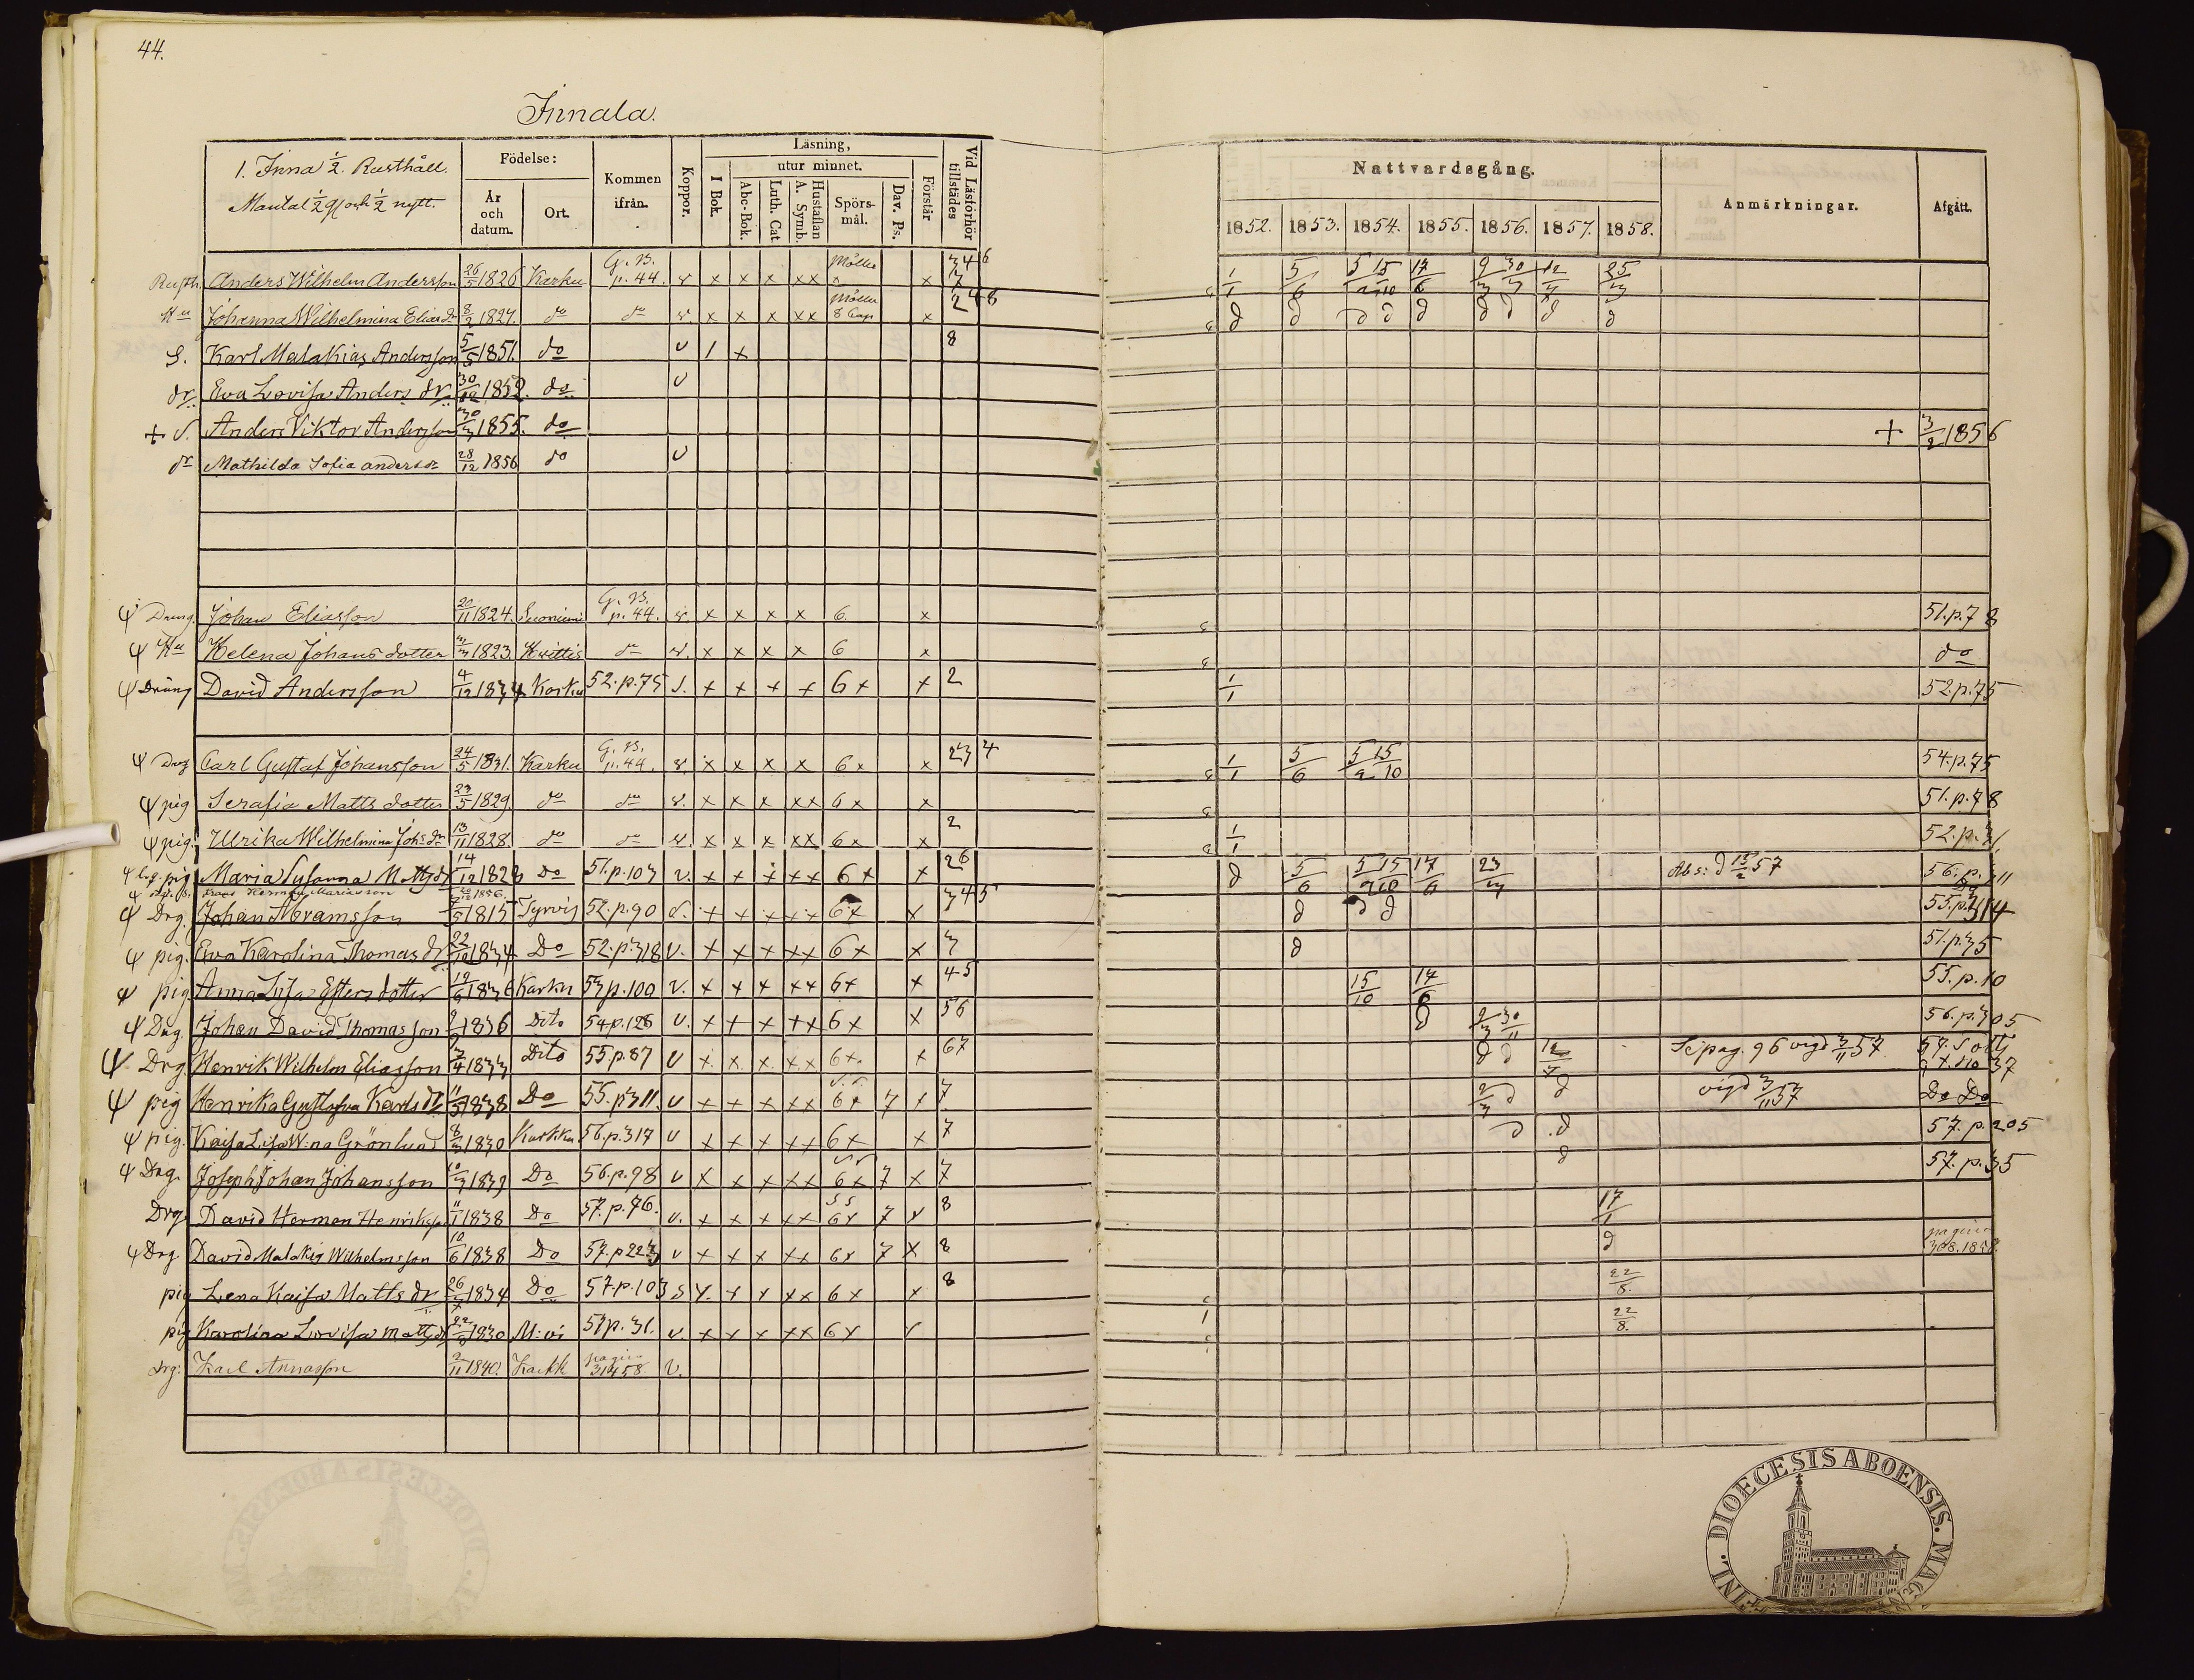 44.
Innala.
1. Inna 1/2 Rusthåll.
Mantal 1/2 och 1/2 nytt.
Födelse:
År och datum.
Ort.
Kommen ifrån.
Koppor.
Läsning,
I Bok.
utur minnet.
Abc-Bok.
Luth. Cat
Hustaflan A. Symb.
Spörs-mål.
Dav. Ps.
Förstår
Vid Läsförhör tillstädes
Nattvardsgång.
1852. 1853. 1854. 1855. 1856. 1857. 1858.
Anmärkningar.
Afgått.
Rusth. Anders Wilhelm Andersson 26/5 1826 Karku G. B. p. 44. v x x x xx Möller x x 3 4 6 7 1/1 5/6 5 15 17/6 9/3 30 25/3
Hu Johanna Wilhelmina Elias dr 8/2 1827. do do v. x x x xx Möller 8 Cap x 2 4 8 d d d d d d d d d
S. Karl Malakias Andersson 5/5 1851. do v 1 x 8
dr. Eva Lovisa Anders dr 30/12 1852. do v
+ S. Anders Viktor Andersson 30/3 1855. do + 3/2 1856
dr Mathilda Sofia anders dr 28/12 1856 do v
Ψ Dräng. Johan Eliasson 20/11 1824. Suoniemi G. B. p. 44. v. x x x x 6 x 51. p. 78
Ψ Hu Helena Johans dotter 1823 Hvittis do v. x x x x 6 x do
Ψ Dräng David Andersson 4/12 1834 Karku 52. p. 75 S. x x x x 6 x x 2 1/1 52. p. 75
Ψ Drg Carl Gustaf Johansson 24/5 1831. Karku G. B. p. 44. v. x x x x 6 x x 2 3 4 1/1 5/6 5 15/10 54. p. 75
Ψ pig Serafia Matts dotter 23/5 1829. do do v. x x x xx 6 x x 51. p. 78
Ψ pig. Ulrika Wilhelmina Johs dr 13/11 1828. do do v. x x x xx 6 x x 2 1/1 52. p.
Ψ pig Maria Susanna Matts dr 14/12 1823 Do 51. p. 103 v. x x x xx 6 x x 2 6 d 5/6 5 15 17/6 23/3 Abs: d 15/2 57 56. p. 311
Frans Herman Mariasson 1856.
Ψ Drg. Johan Abramsson 1815 Tyrvis 52. p. 90 S. x x x xx 6 x x 3 4 5 d d d 55. p. 314
Ψ pig. Eva Karolina Thomas dr 22/10 1834 Do 52. p. 318 v. x x x xx 6 x x 3 d 51. p. 35
Ψ pig. Anna Lisa Esters dotter 19/6 1836 Karku 53 p. 100 v. x x x xx 6 x x 4 5 15/10 17/6 55. p. 10
Ψ Drg. Johan David Thomasson 1836 Dito 54 p. 128 v. x x x xx 6 x x 5 6 d 9/3 30/11 56. p. 305
Ψ Drg. Henrik Wilhelm Eliasson 7/4 1833 Dito 55. p. 87 v x x x xx 6 x x 6 7 d d Se pag. 96 vigd 3/11 57.
Ψ pig Henrika Gustafva Karls dr 11/5 1838 Do 55. p 311. v x x x xx 6 x 7 x 7 9/3 d d vigd 3/11 57 Do Do
Ψ pig. Kaisa Lisa W:na Grönlund 8/3 1830 Karkku 56. p. 317 v x x x xx 6 x x 7 d d 57. p. 205
Ψ Drg. Joseph Johan Johansson 10/3 1839 Do 56. p. 98 v x x x xx 6 x 7 x 7 d 57. p. 35
Drg. David Herman Henriksson 11/1 1838 Do 57. p. 76. v. x x x xx 6 x 7 x 8 17/1
Ψ Drg. David Malakias Wilhelmsson 10/6 1838 Do 57. p 223 v x x x xx 6 x 7 x 8 d pagina 308. 1858.
pig Lena Kaisa Matts dr 26/ 1834 Do 57. p. 103 S x x x xx 6 x x 8 22/8.
pig Karolina Lovisa Matts dr 1830 M:vi 57 p. 31. v. x x x xx 6 x x 22/8.
Drg: Karl Annasson 2/11 1840. Karkk pagina 314 58. v.
DIOECESIS ABOENSIS.